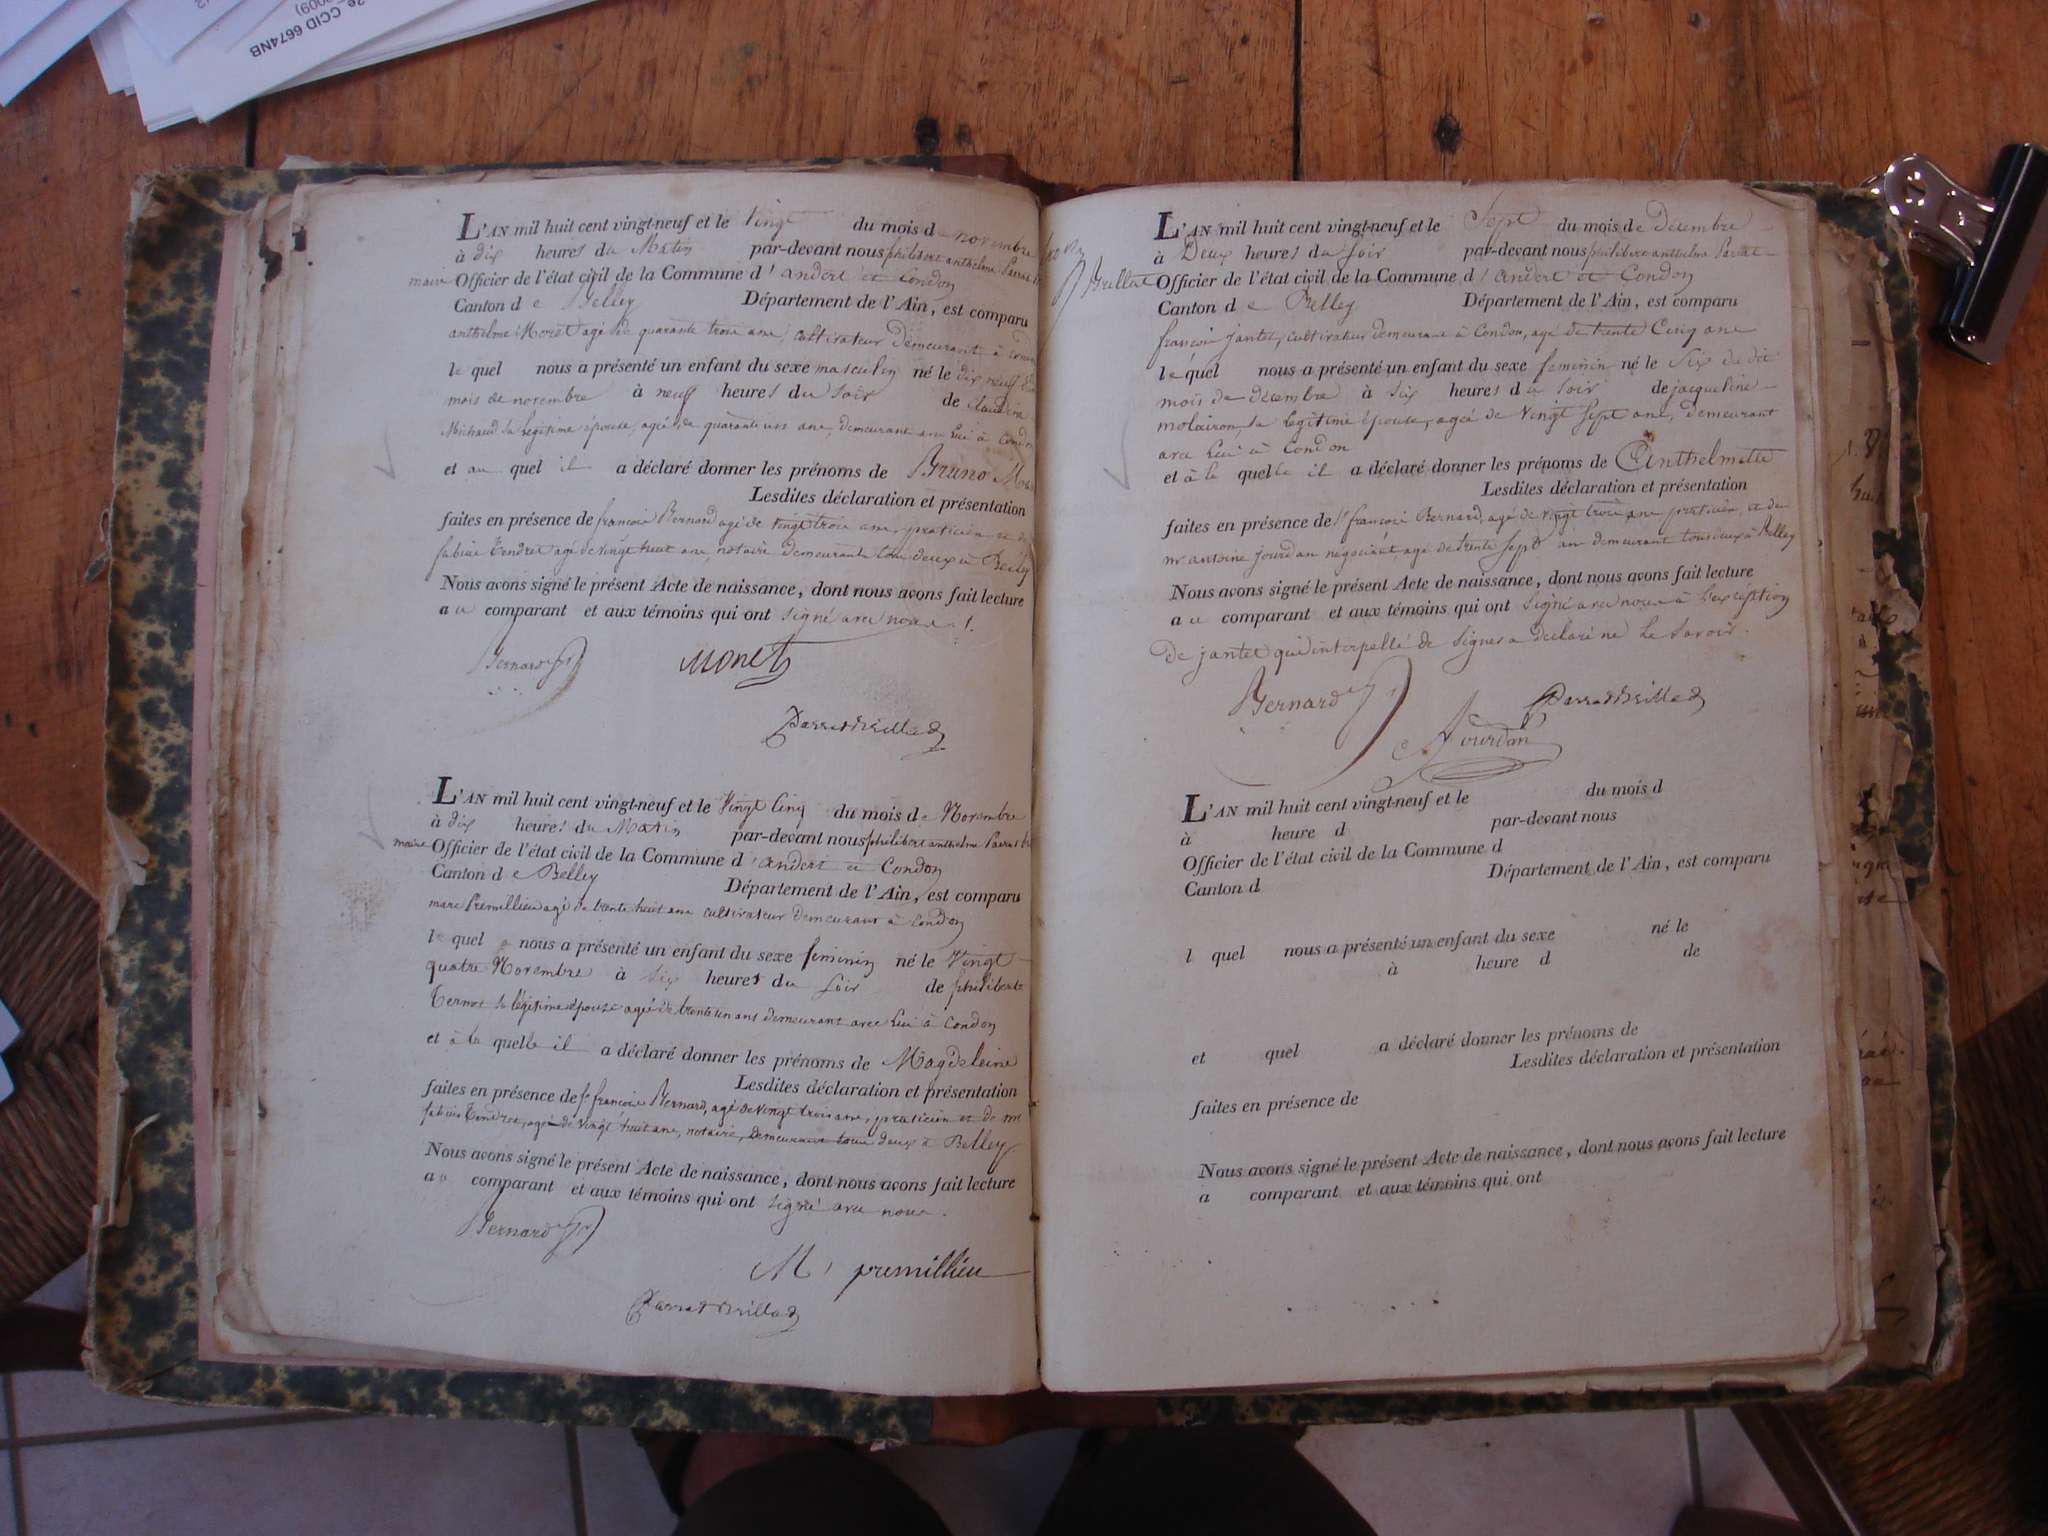 2e. CCID 6674NB
2009)
L'AN mil huit cent vingt-neuf et le Vingt du mois d novembre
à dix heures du Matin par-devant nous philibert anthelme Parrat
maire Officier de l'état civil de la Commune d'andert et Condon
Canton de Belley Département de l'Ain, est comparu
anthelme Monet agé de quarante trois ans, cultivateur demeurant à
le quel nous a présenté un enfant du sexe masculin né le dix neuf
mois de novembre à neuf heures du soir de Claudine
Michaud sa légitime épouse, agée de quarante un ans, demeurant avec lui à
et au quel il a déclaré donner les prénoms de Bruno
Lesdites déclaration et présentation
faites en présence de françois Bernard, agé de vingt trois ans, praticien et de
fabien Tendret agé de vingt huit ans, notaire, demeurants tous deux à Belley
Nous avons signé le présent Acte de naissance, dont nous avons fait lecture
au comparant et aux témoins qui ont signé avec nous.
Bernard
Monet
Parrat Brillat
L'AN mil huit cent vingt-neuf et le Vingt Cinq du mois de Novembre
à dix heures du Matin par-devant nous philibert anthelme Parrat
maire Officier de l'état civil de la Commune d'andert et Condon
Canton de Belley Département de l'Ain, est comparu
marc Premillieu agé de trente huit ans cultivateur demeurant à Condon
le quel nous a présenté un enfant du sexe feminin né le Vingt
quatre Novembre à six heures du soir de philiberte
sa légitime épouse agée de trente un ans demeurant avec lui à Condon
et à la quelle il a déclaré donner les prénoms de Magdeleine
Lesdites déclaration et présentation
faites en présence de Sr françois Bernard, agé de vingt trois ans, praticien et de mr
fabien Tendret, agé de vingt huit ans, notaire, demeurant tous deux à Belley
Nous avons signé le présent Acte de naissance, dont nous avons fait lecture
au comparant et aux témoins qui ont signé avec nous.
Bernard
M, premillieu
Parrat Brillat
L'AN mil huit cent vingt-neuf et le Sept du mois de Décembre
à Deux heures du soir par-devant nous philibert anthelme Parrat
Brillat Officier de l'état civil de la Commune d'andert et Condon
Canton de Belley Département de l'Ain, est comparu
françois jantet, cultivateur demeurant à Condon, agé de trente Cinq ans
le quel nous a présenté un enfant du sexe feminin né le Six du dit
mois de décembre à six heures du soir de jacqueline
molairon, sa legitime épouse, agée de vingt sept ans, demeurant
avec lui à Condon
et à la quelle il a déclaré donner les prénoms de Anthelmette
Lesdites déclaration et présentation
faites en présence de Sr françois Bernard, agé de vingt trois ans praticien, et de
mr antoine jourdan négociant, agé de trente sept ans demeurant tous deux à Belley
Nous avons signé le présent Acte de naissance, dont nous avons fait lecture
au comparant et aux témoins qui ont signé avec nous à l'exception
de jantet qui interpellé de signer a declaré ne le savoir.
Bernard
Parrat Brillat
Jourdan
L'AN mil huit cent vingt-neuf et le du mois d
à heure d par-devant nous
Officier de l'état civil de la Commune d
Canton d Département de l'Ain, est comparu
l quel nous a présenté un enfant du sexe né le
à heure d de
et quel a déclaré donner les prénoms de
Lesdites déclaration et présentation
faites en présence de
Nous avons signé le présent Acte de naissance, dont nous avons fait lecture
a comparant et aux témoins qui ont